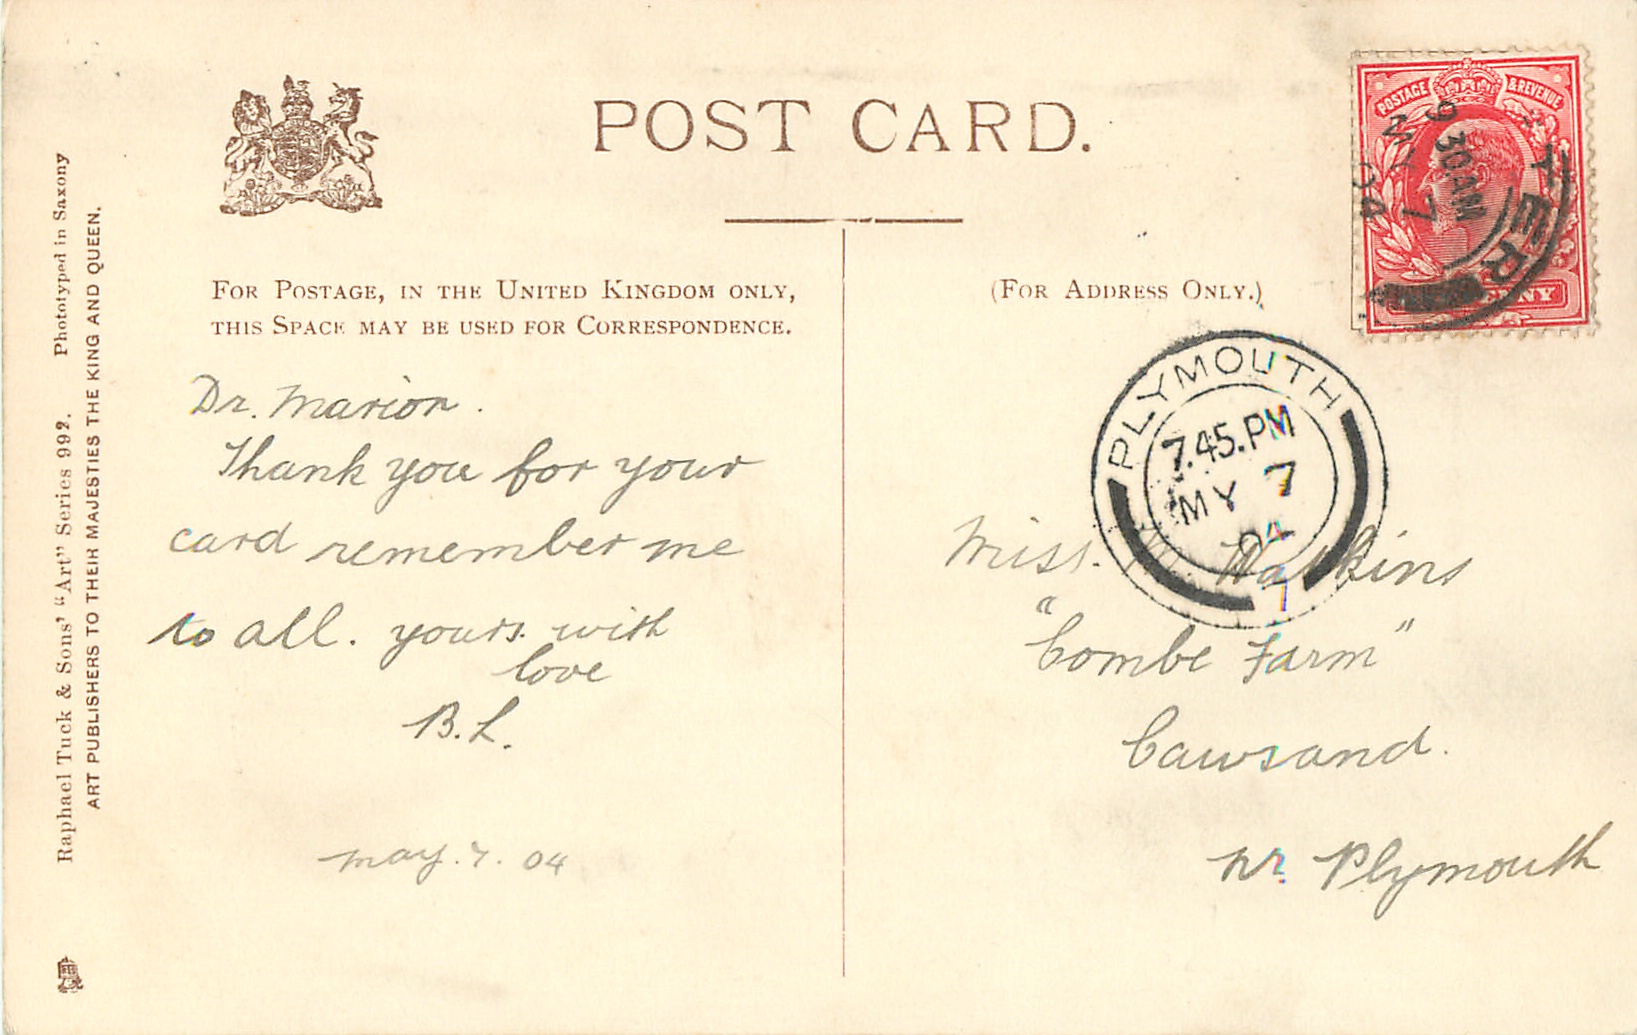 POST CARD.
FOR POSTAGE, IN THE UNITED KINGDOM ONLY,
THIS SPACE MAY BE USED FOR CORRESPONDENCE.
(FOR ADDRESS ONLY.)
Raphael Tuck & Sons' "Art" Series 992. Phototyped in Saxony
ART PUBLISHERS TO THEIR MAJESTIES THE KING AND QUEEN.
Dr. Marion.
Thank you for your
card remember me
to all. yours. with
love
B.L.
may. 7. 04
POSTAGE & REVENUE
9 30 AM
MY 7
04
TER
PLYMOUTH
7.45.PM
MY 7
04
7
Miss. Watkins
"Combe Farm"
Cawsand.
nr. Plymouth